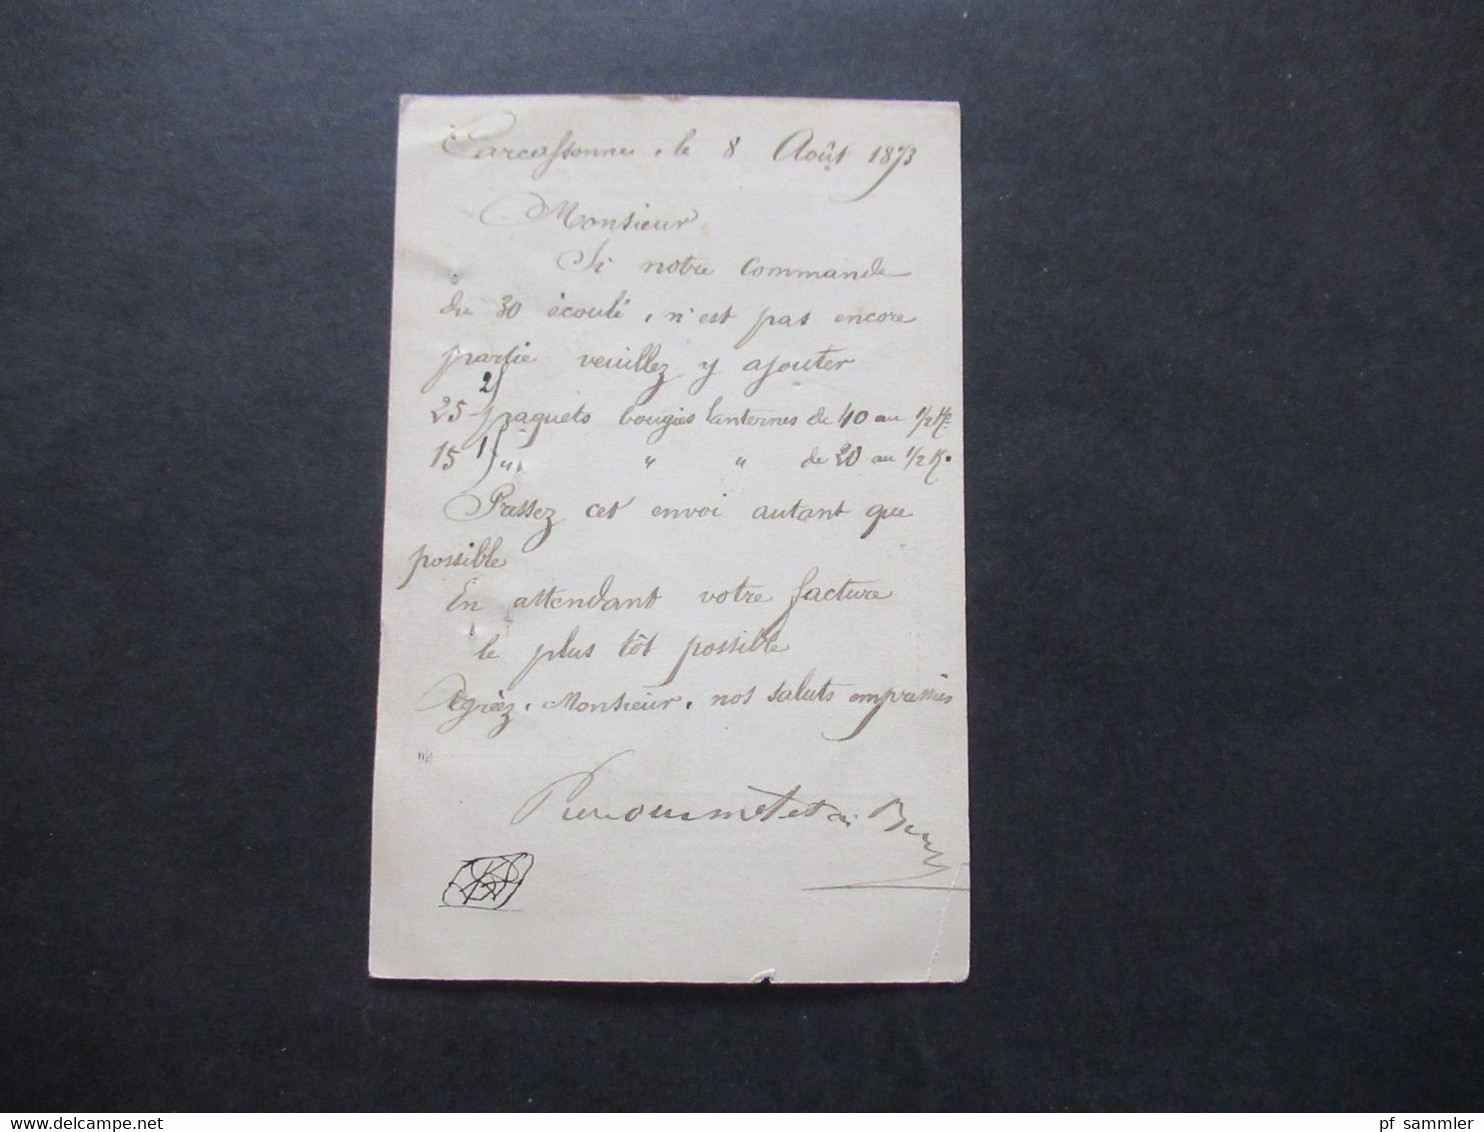 Carcassonne, le 8 Août 1873
Monsieur
Si notre commande
du 30 écoulé, n'est pas encore
partie veuillez y ajouter
25 2) paquets bougies lanternes de 40 au 1/2 Ko
15 1) " " " de 20 au 1/2 K.
Pressez cet envoi autant que
possible
En attendant votre facture
le plus tôt possible
Agréez, Monsieur, nos saluts empressés
delcampe.net
pf_sammler